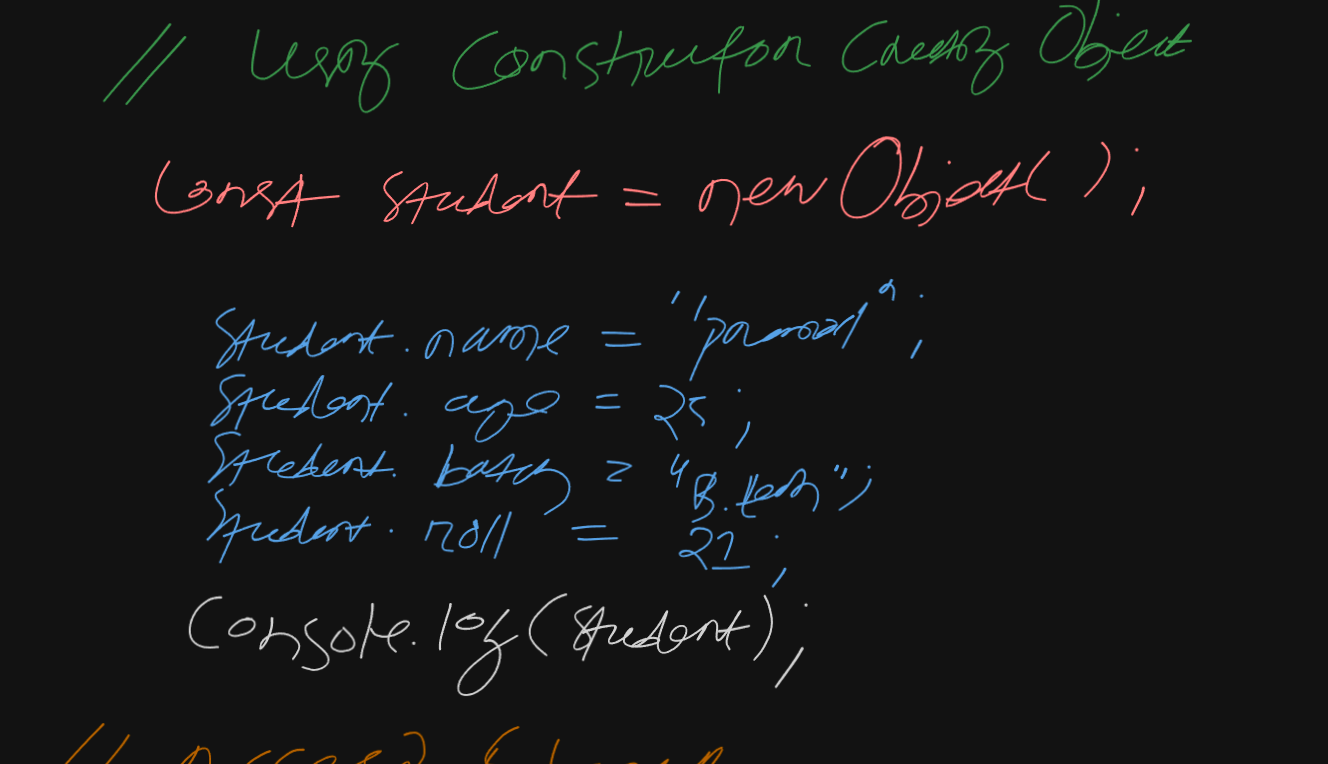 // Using Constructor Creating Object
Const student = new Object();
student.name = "pramod";
student.age = 25;
student.batch = "B.tech";
student.roll = 21;
Console.log(student);
//